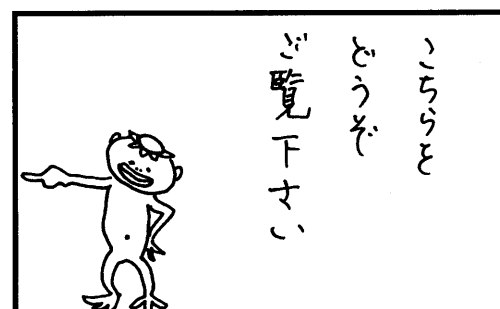 こちらを
どうぞ
ご覧下さい